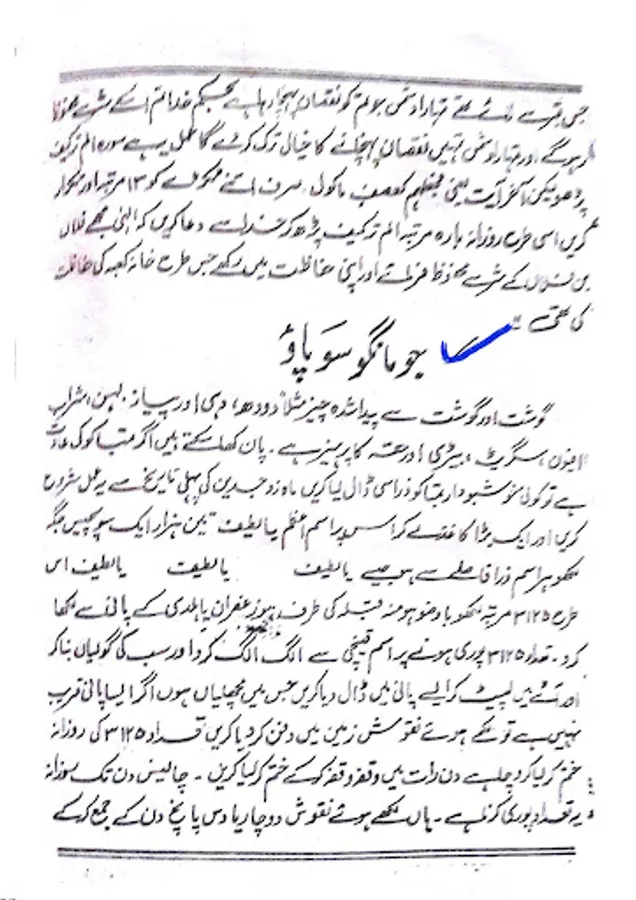 جس طرح سے تمہارا دشمن تم کو نقصان پہنچا رہا ہے بحکم خدا تم اسکے شر سے محفوظ
ہو گے اور تمہارا دشمن تمہیں نقصان پہنچانے کا خیال ترک کرے گا عمل یہ ہے سورہ الم ترکیف
پڑھو لیکن آخر آیت یعنی فجعلہم کعصف ماکول صرف اتنے ٹکڑے کو ۱۳ مرتبہ اور تکرار
کریں اسی طرح روزانہ بارہ مرتبہ الم ترکیف پڑھ کر خدا سے دعا کریں کہ الٰہی مجھے فلاں
بن فلاں کے شر سے محفوظ فرمائے اور اپنی حفاظت میں رکھے جس طرح خانہ کعبہ کی حفاظت
کی تھی ۔
جو مانگو سو پاؤ
گوشت اور گوشت سے پیدا شدہ چیز مثلاً دودھ، دہی اور پیاز، لہسن، شراب
افیون، سگریٹ، بیڑی اور حقہ کا پرہیز ہے ۔ پان کھا سکتے ہیں اگر تمباکو کی عادت
ہے تو کوئی خوشبودار تمباکو ذرا سی ڈال لیا کریں ماہ نو چندیں کی پہلی تاریخ سے یہ عمل شروع
کریں اور ایک بڑا کاغذ لے کر اس پر اسم اعظم یالطیف تین ہزار ایک سو پچیس جگہ
لکھو ہر اسم ذرا فاصلے سے ہو جیسے یالطیف یالطیف یالطیف اس
طرح ۳۱۲۵ مرتبہ لکھو باوضو ہو منہ قبلہ کی طرف ہو زعفران یا ہلدی کے پانی سے لکھا
کرو ۔ تعداد ۳۱۲۵ پوری ہونے پر اسم قینچی سے الگ الگ کر دو اور سب کی گولیاں بنا کر
اور آٹے میں لپیٹ کر ایسے پانی میں ڈال دیا کریں جس میں مچھلیاں ہوں اگر ایسا پانی قریب
نہیں ہے تو لکھے ہوئے نقوش زمین میں دفن کر دیا کریں تعداد ۳۱۲۵ کی روزانہ
ختم کر لیا کرو چاہے دن رات میں وقفہ وقفہ کر کے ختم کر لیا کریں ۔ چالیس دن تک روزانہ
یہ تعداد پوری کرنا ہے ۔ ہاں لکھے ہوئے نقوش دو چار یا دس پانچ دن کے جمع کر کے